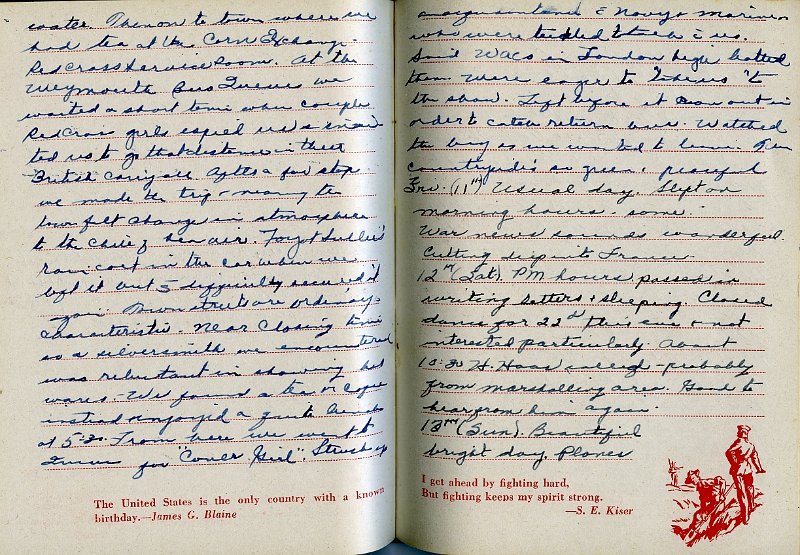 water. Then on to town where we
had tea at the Corn Exchange -
Red Cross Service Room. At the
Weymouth Bus Queue we
waited a short time when couple
Red Cross girls espied us & invi-
ted us to go that distance in their
British carryall. After a few stops
we made the trip - nearing the
town felt change in atmosphere
to the chill of sea air. Forgot
rain coat in the car when we
left it but difficulty secured it
again. Town streets are ordinary
characteristic. Near closing time
so a silversmith we encountered
was reluctant in showing his
wares. We found a tea & 
instead & enjoyed a quick lunch
at 5:30. From here we went to
Queue for "Cover Girl". Struck up
acquaintance & Navy & Marines
who were to & us.
Said WACs in London high hatted
them. Were eager to us to
the show. Left before it was out in
order to catch return bus. Watched
the bay as we waited to leave. The
countryside is so green & peaceful
Fri. (11th) Usual day. Slept on
morning hours - some.
War news sounds wonderful.
Cutting deep into France.
12th (Sat). PM hours passed in
writing letters & sleeping. Closed
dance for 22nd this eve & not
interested particularly. About
10:30 H. Haas called - probably
from marshalling area. Good to
hear from him again.
13th (Sun). Beautiful
bright day. Planes
The United States is the only country with a known
birthday.—James G. Blaine
I get ahead by fighting hard,
But fighting keeps my spirit strong.
—S. E. Kiser